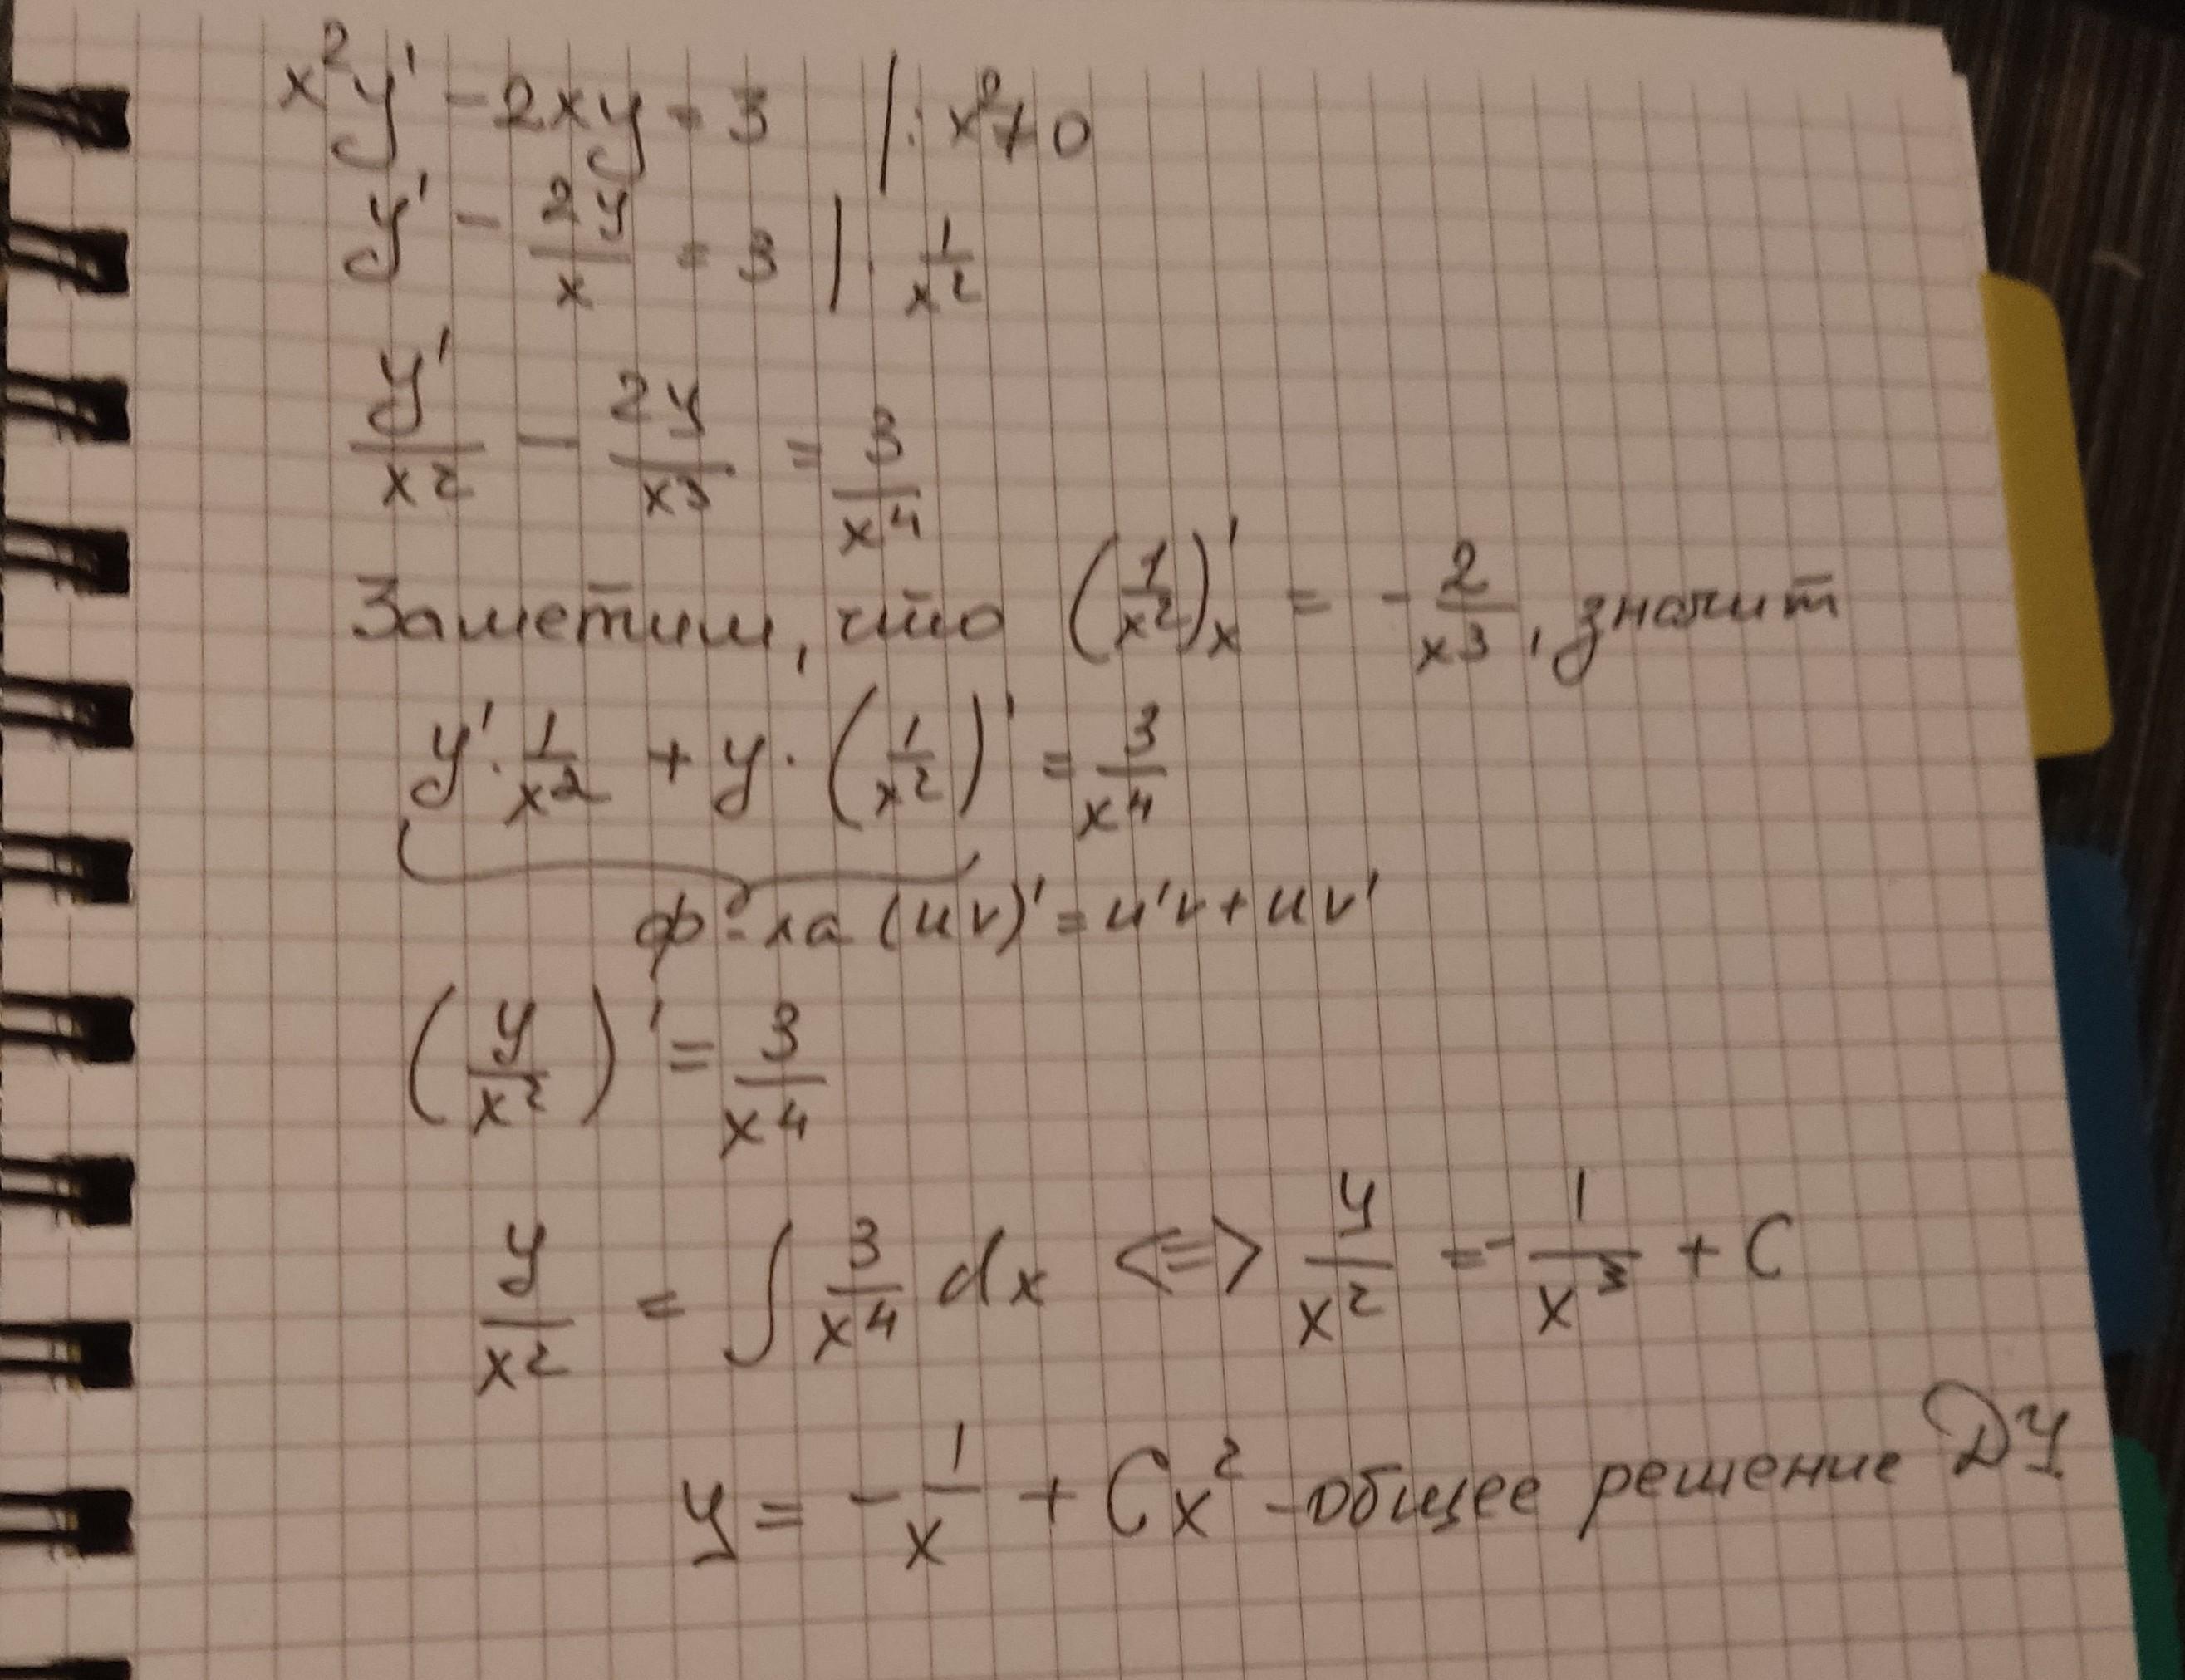 x²y' - 2xy = 3 | : x² ≠ 0
y' - 2y/x = 3 | · 1/x²
y'/x² - 2y/x³ = 3/x⁴
Заметим, что (1/x²)'ₓ = - 2/x³, значит
y' · 1/x² + y · (1/x²)' = 3/x⁴
ф-ла (uv)' = u'v + uv'
(y/x²)' = 3/x⁴
y/x² = ∫ 3/x⁴ dx <=> y/x² = - 1/x³ + C
y = - 1/x + Cx² - общее решение ДУ